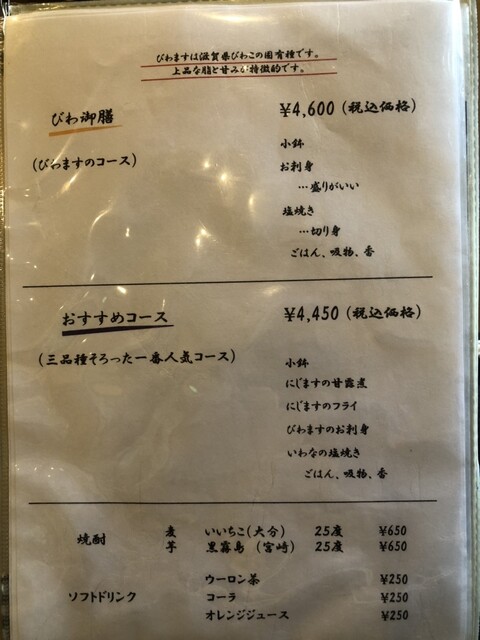 びわますは滋賀県びわこの固有種です。
上品な脂と甘みが特徴的です。
びわ御膳 ¥4,600 (税込価格)
(びわますのコース)
小鉢
お刺身
…盛りがいい
塩焼き
…切り身
ごはん、吸物、香
おすすめコース ¥4,450 (税込価格)
(三品種そろった一番人気コース)
小鉢
にじますの甘露煮
にじますのフライ
びわますのお刺身
いわなの塩焼き
ごはん、吸物、香
焼酎 麦 いいちこ(大分) 25度 ¥650
芋 黒霧島 (宮崎) 25度 ¥650
ウーロン茶 ¥250
ソフトドリンク コーラ ¥250
オレンジジュース ¥250